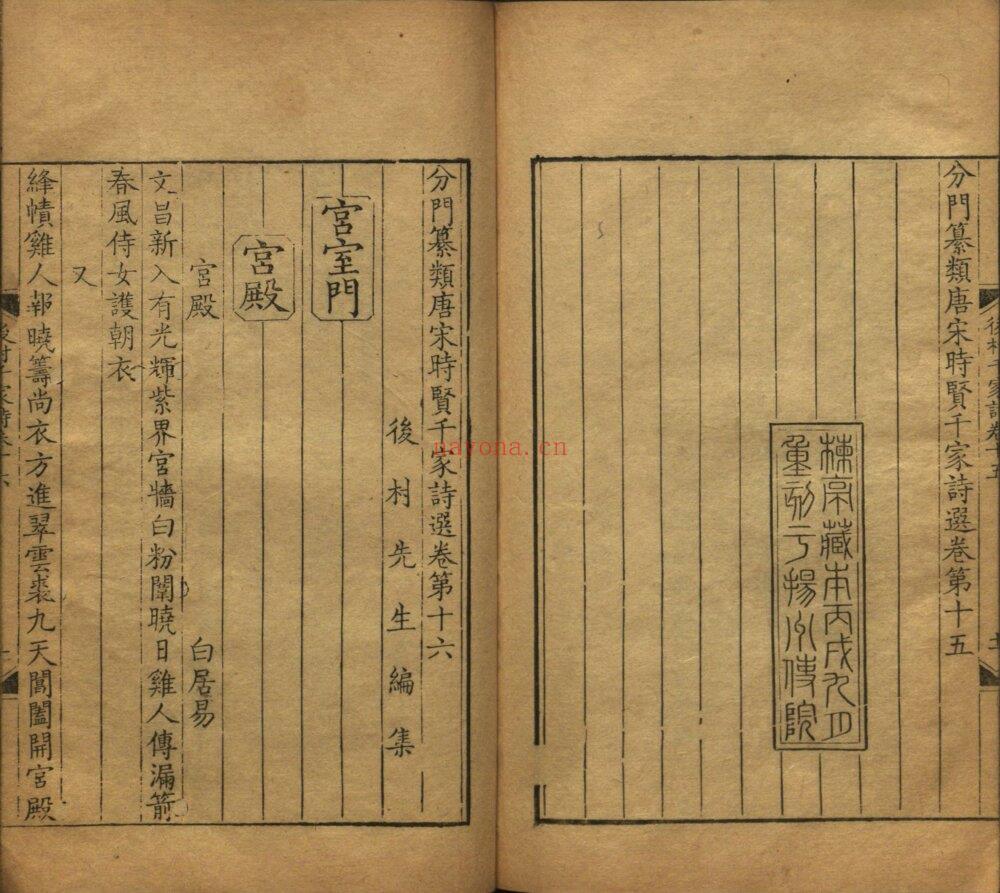 分門纂類唐宋時賢千家詩選卷第十五
楝亭藏本丙戌九月
重刻于揚州使院
分門纂類唐宋時賢千家詩選卷第十六
後村先生編集
宮室門
宮殿
宮殿 白居易
文昌新入有光輝紫界宮牆白粉闈曉日雞人傳漏箭
春風侍女護朝衣
又
絳幘雞人報曉籌尚衣方進翠雲裘九天閶闔開宮殿
nayona.cn